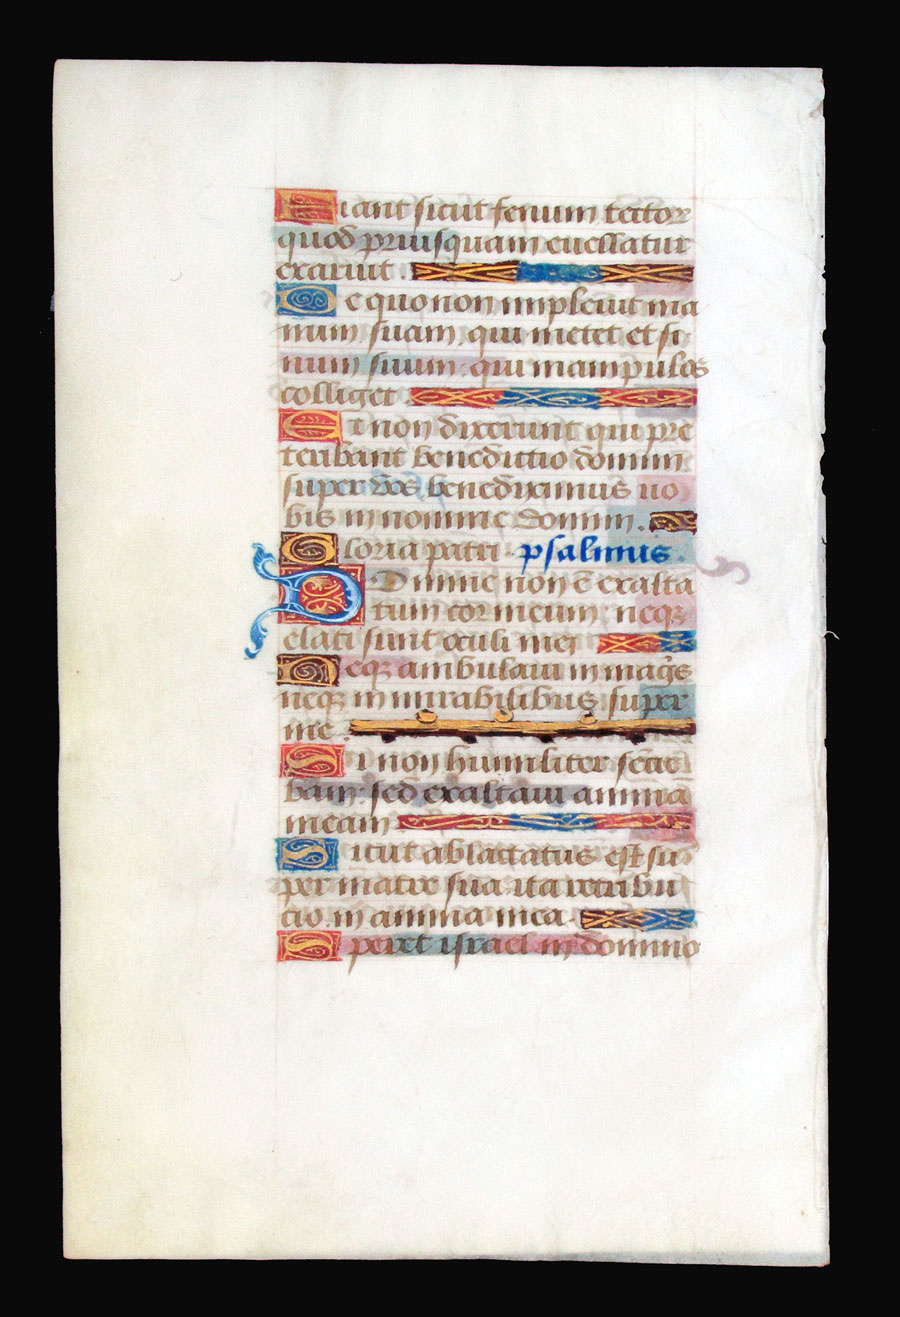 Fiant sicut fenum tector̃
quod priusquam euellatur
exaruit
De quo non impleuit ma
num suam qui metet et si
num suum qui manipulos
colliget
Et non dixerunt qui pre
teribant benedictio domini
super vos benediximus uo
bis in nomine domini.
Gloria patri psalmus.
Domine non ẽ exalta
tum cor meum neqꝫ
elati sunt oculi mei
Neqꝫ ambulaui in magĩs
neqꝫ in mirabilibus super
me.
Si non humiliter sentie
bam sed exaltaui animã
meam
Sicut ablactatus est su
per matre sua ita retribu
tio in anima mea.
Speret israel in domino